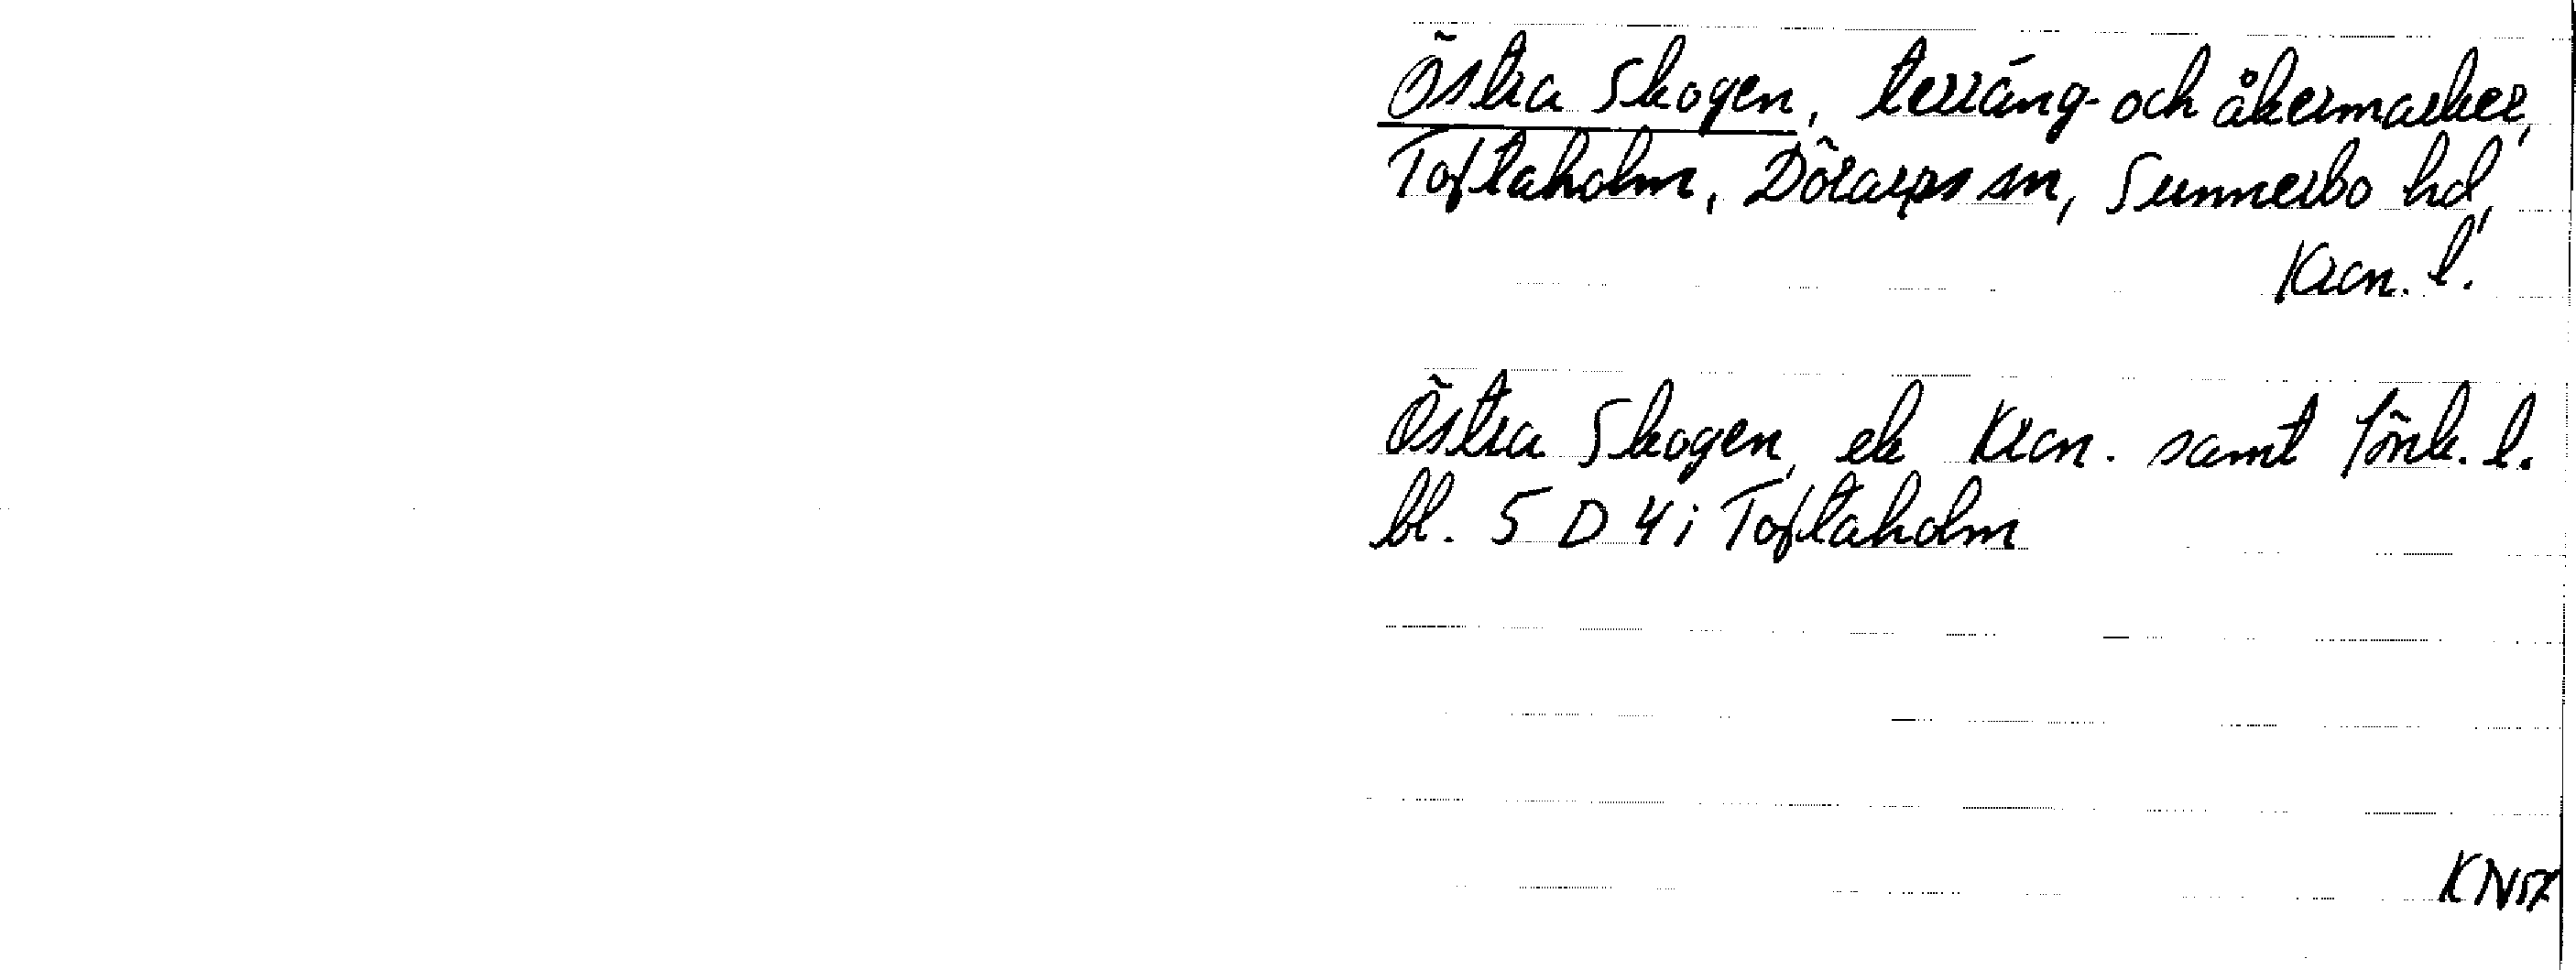 Östra Skogen, terräng- och åkermarker,
Toftaholm, Dörarps sn, Sunnerbo hd,
Kron. l.
Östra Skogen, ek Kron. samt Jönk. l.
bl. 5 D 4 i Toftaholm